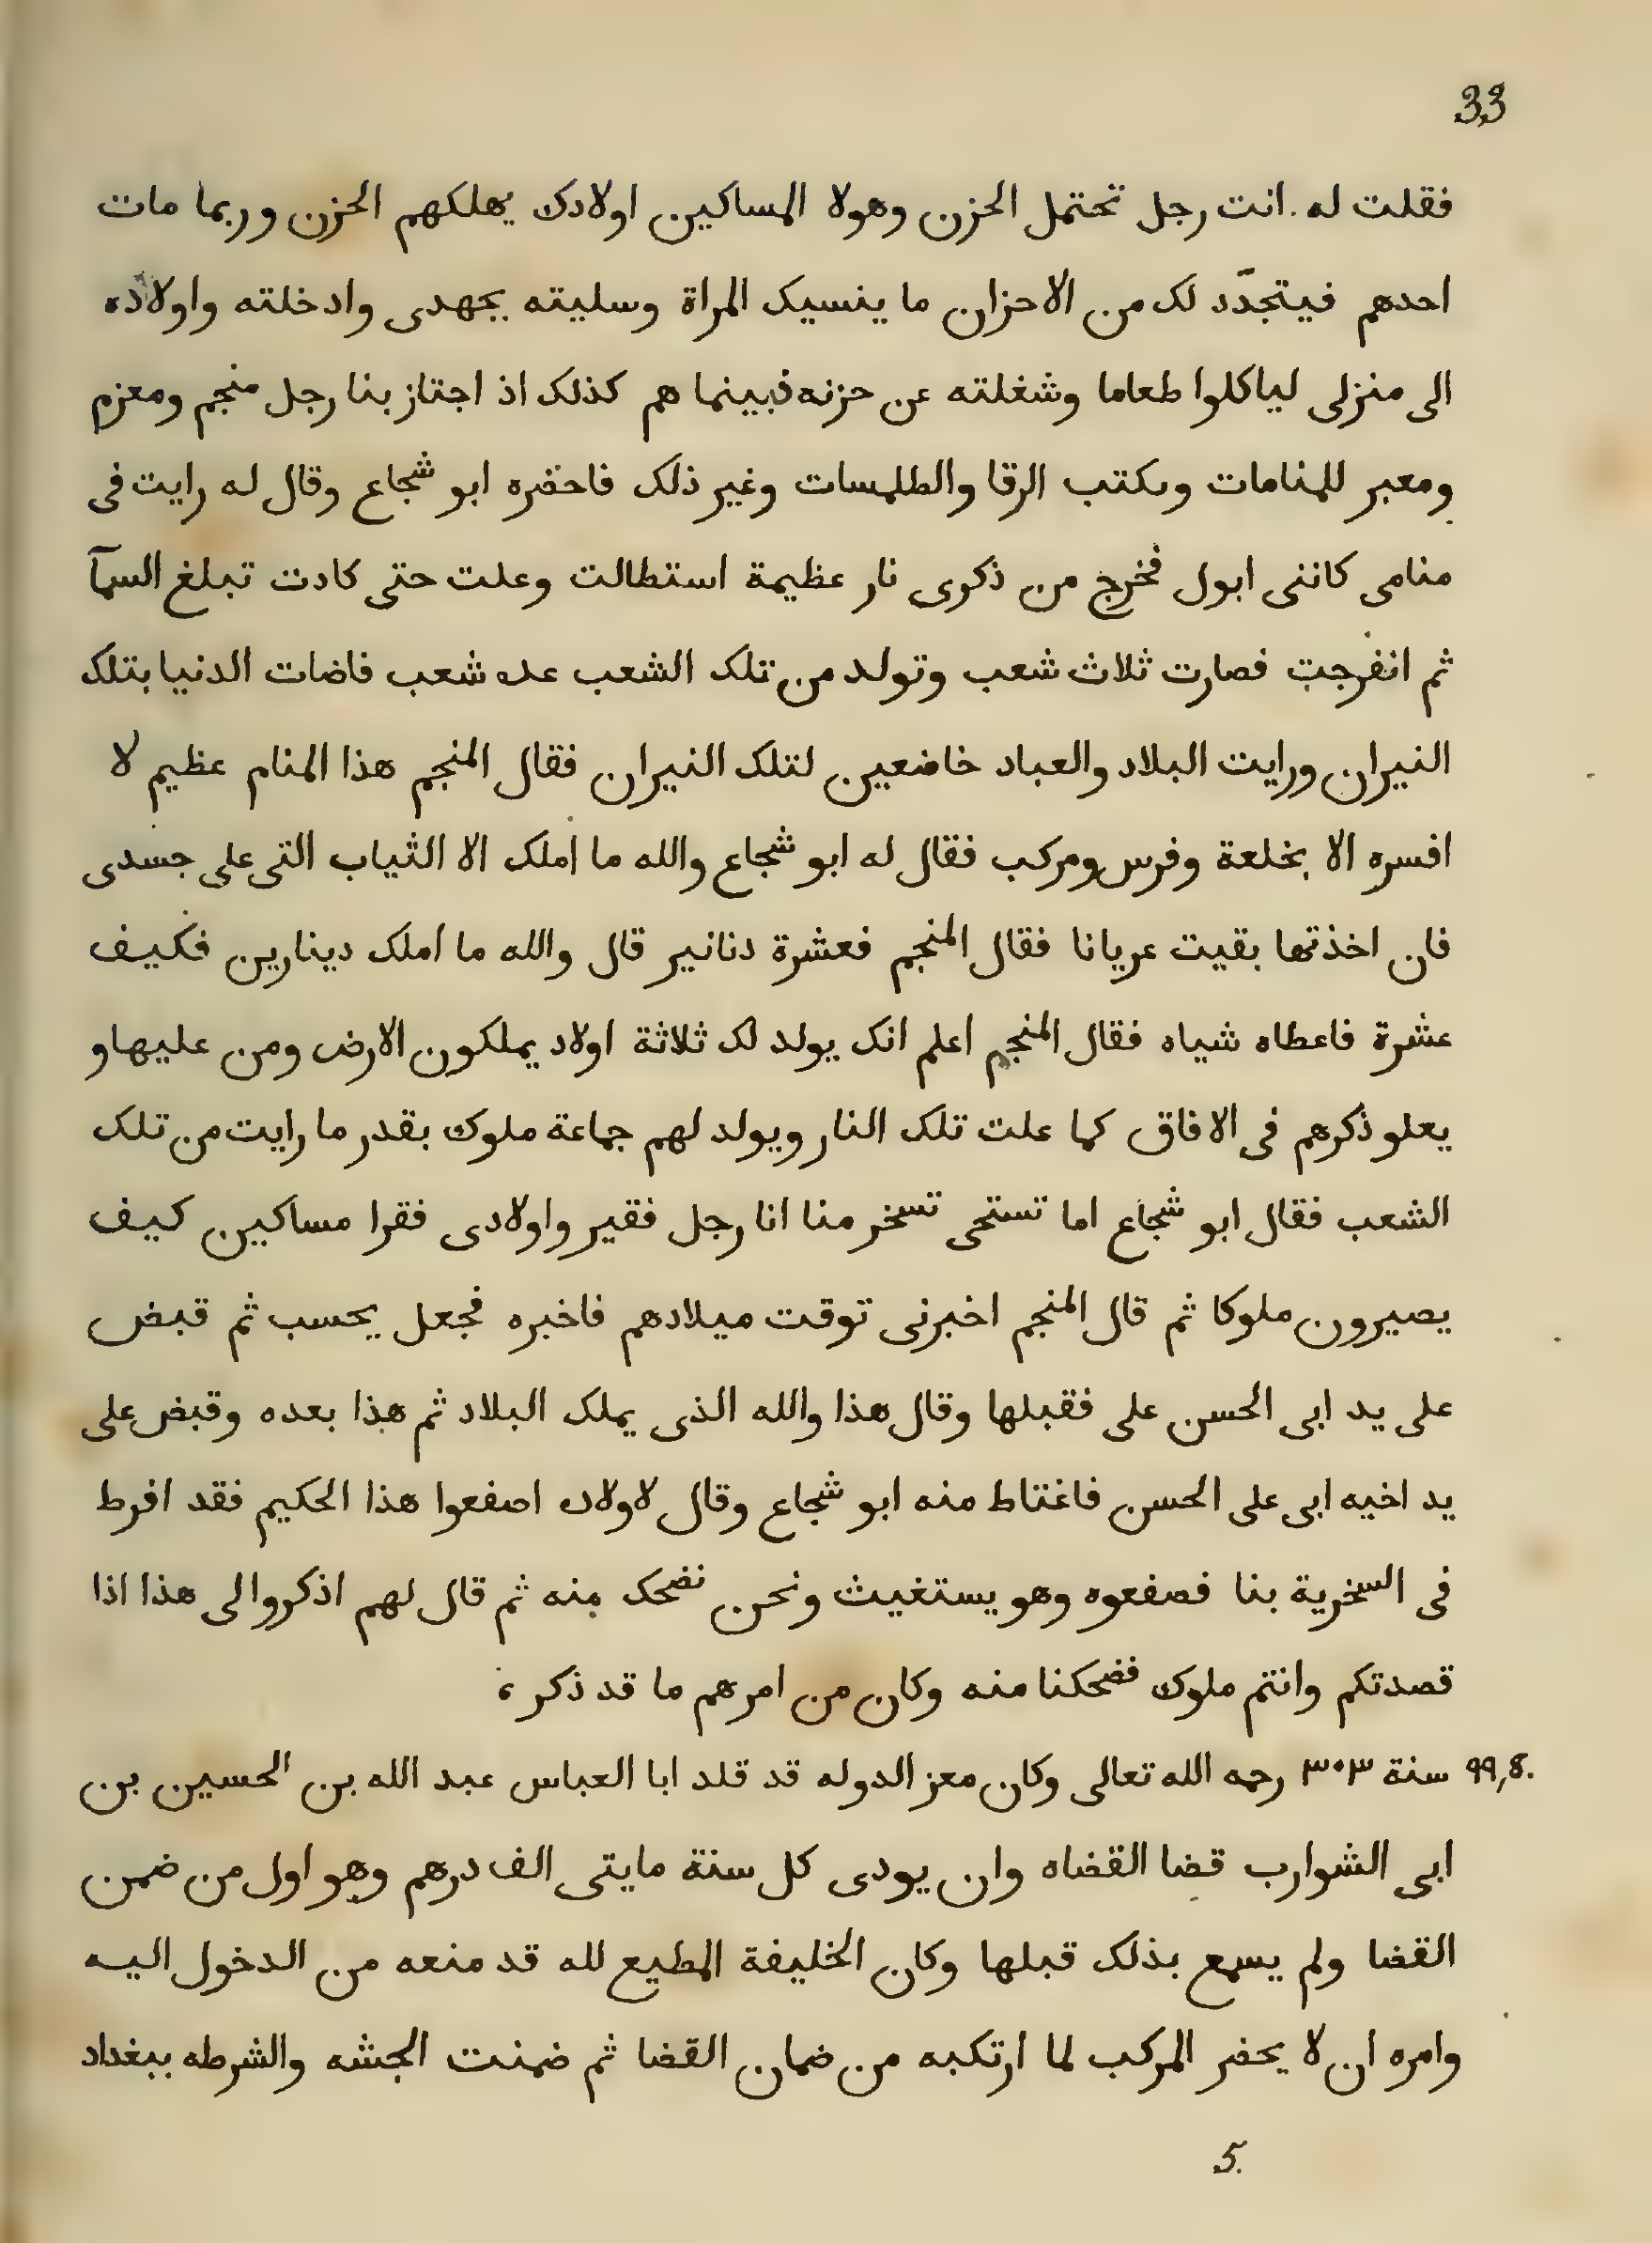 33
فقلت له . انت رجل تحتمل الحزن وهولا المساكين اولادك يهلكهم الحزن وربما مات
احدهم فيتجدّد لك من الاحزان ما ينسيك المراة وسليته بجهدى وادخلته واولاده
الى منزلى لياكلوا طعاما وشغلته عن حزنه فبينما هم كذلك اذ اجتاز بنا رجل منجم ومعزم
ومعبر للمنامات ويكتب الرقا والطلمسات وغير ذلك فاحضره ابو شجاع وقال له رايت فى
منامى كاننى ابول فخرج من ذكرى نار عظيمة استطالت وعلت حتى كادت تبلغ السمآ
ثم انفرجت فصارت ثلاث شعب وتولد من تلك الشعب عده شعب فاضات الدنيا بتلك
النيران ورايت البلاد والعباد خاضعين لتلك النيران فقال المنجم هذا المنام عظيم لا
افسره الا بخلعة وفرس ومركب فقال له ابو شجاع والله ما املك الا الثياب التى على جسدى
فان اخذتها بقيت عريانا فقال المنجم فعشرة دنانير قال والله ما املك دينارين فكيف
عشرة فاعطاه شياه فقال المنجم اعلم انك يولد لك ثلاثة اولاد يملكون الارض ومن عليها و
يعلو ذكرهم فى الافاق كما علت تلك النار ويولد لهم جماعة ملوك بقدر ما رايت من تلك
الشعب فقال ابو شجاع اما تستحى تسخر منا انا رجل فقير واولادى فقرا مساكين كيف
يصيرون ملوكا ثم قال المنجم اخبرنى توقت ميلادهم فاخبره فجعل يحسب ثم قبض
على يد ابى الحسن على فقبلها وقال هذا والله الذى يملك البلاد ثم هذا بعده وقبض على
يد اخيه ابى على الحسن فاغتاط منه ابو شجاع وقال لاولاده اصفعوا هذا الحكيم فقد افرط
فى السخرية بنا فصفعوه وهو يستغيث ونحن نضحك منه ثم قال لهم اذكروا لى هذا اذا
قصدتكم وانتم ملوك فضحكنا منه وكان من امرهم ما قد ذكر ،
99,8. سنة ٣٠٣ رحمه الله تعالى وكان معز الدوله قد قلد ابا العباس عبد الله بن الحسين بن
ابى الشوارب قضا القضاه وان يودى كل سنة مايتى الف درهم وهو اول من ضمن
القضا ولم يسمع بذلك قبلها وكان الخليفة المطيع لله قد منعه من الدخول اليه
وامره ان لا يحضر المركب لما ارتكبه من ضمان القضا ثم ضمنت الجشه والشرطه ببغداد
5.